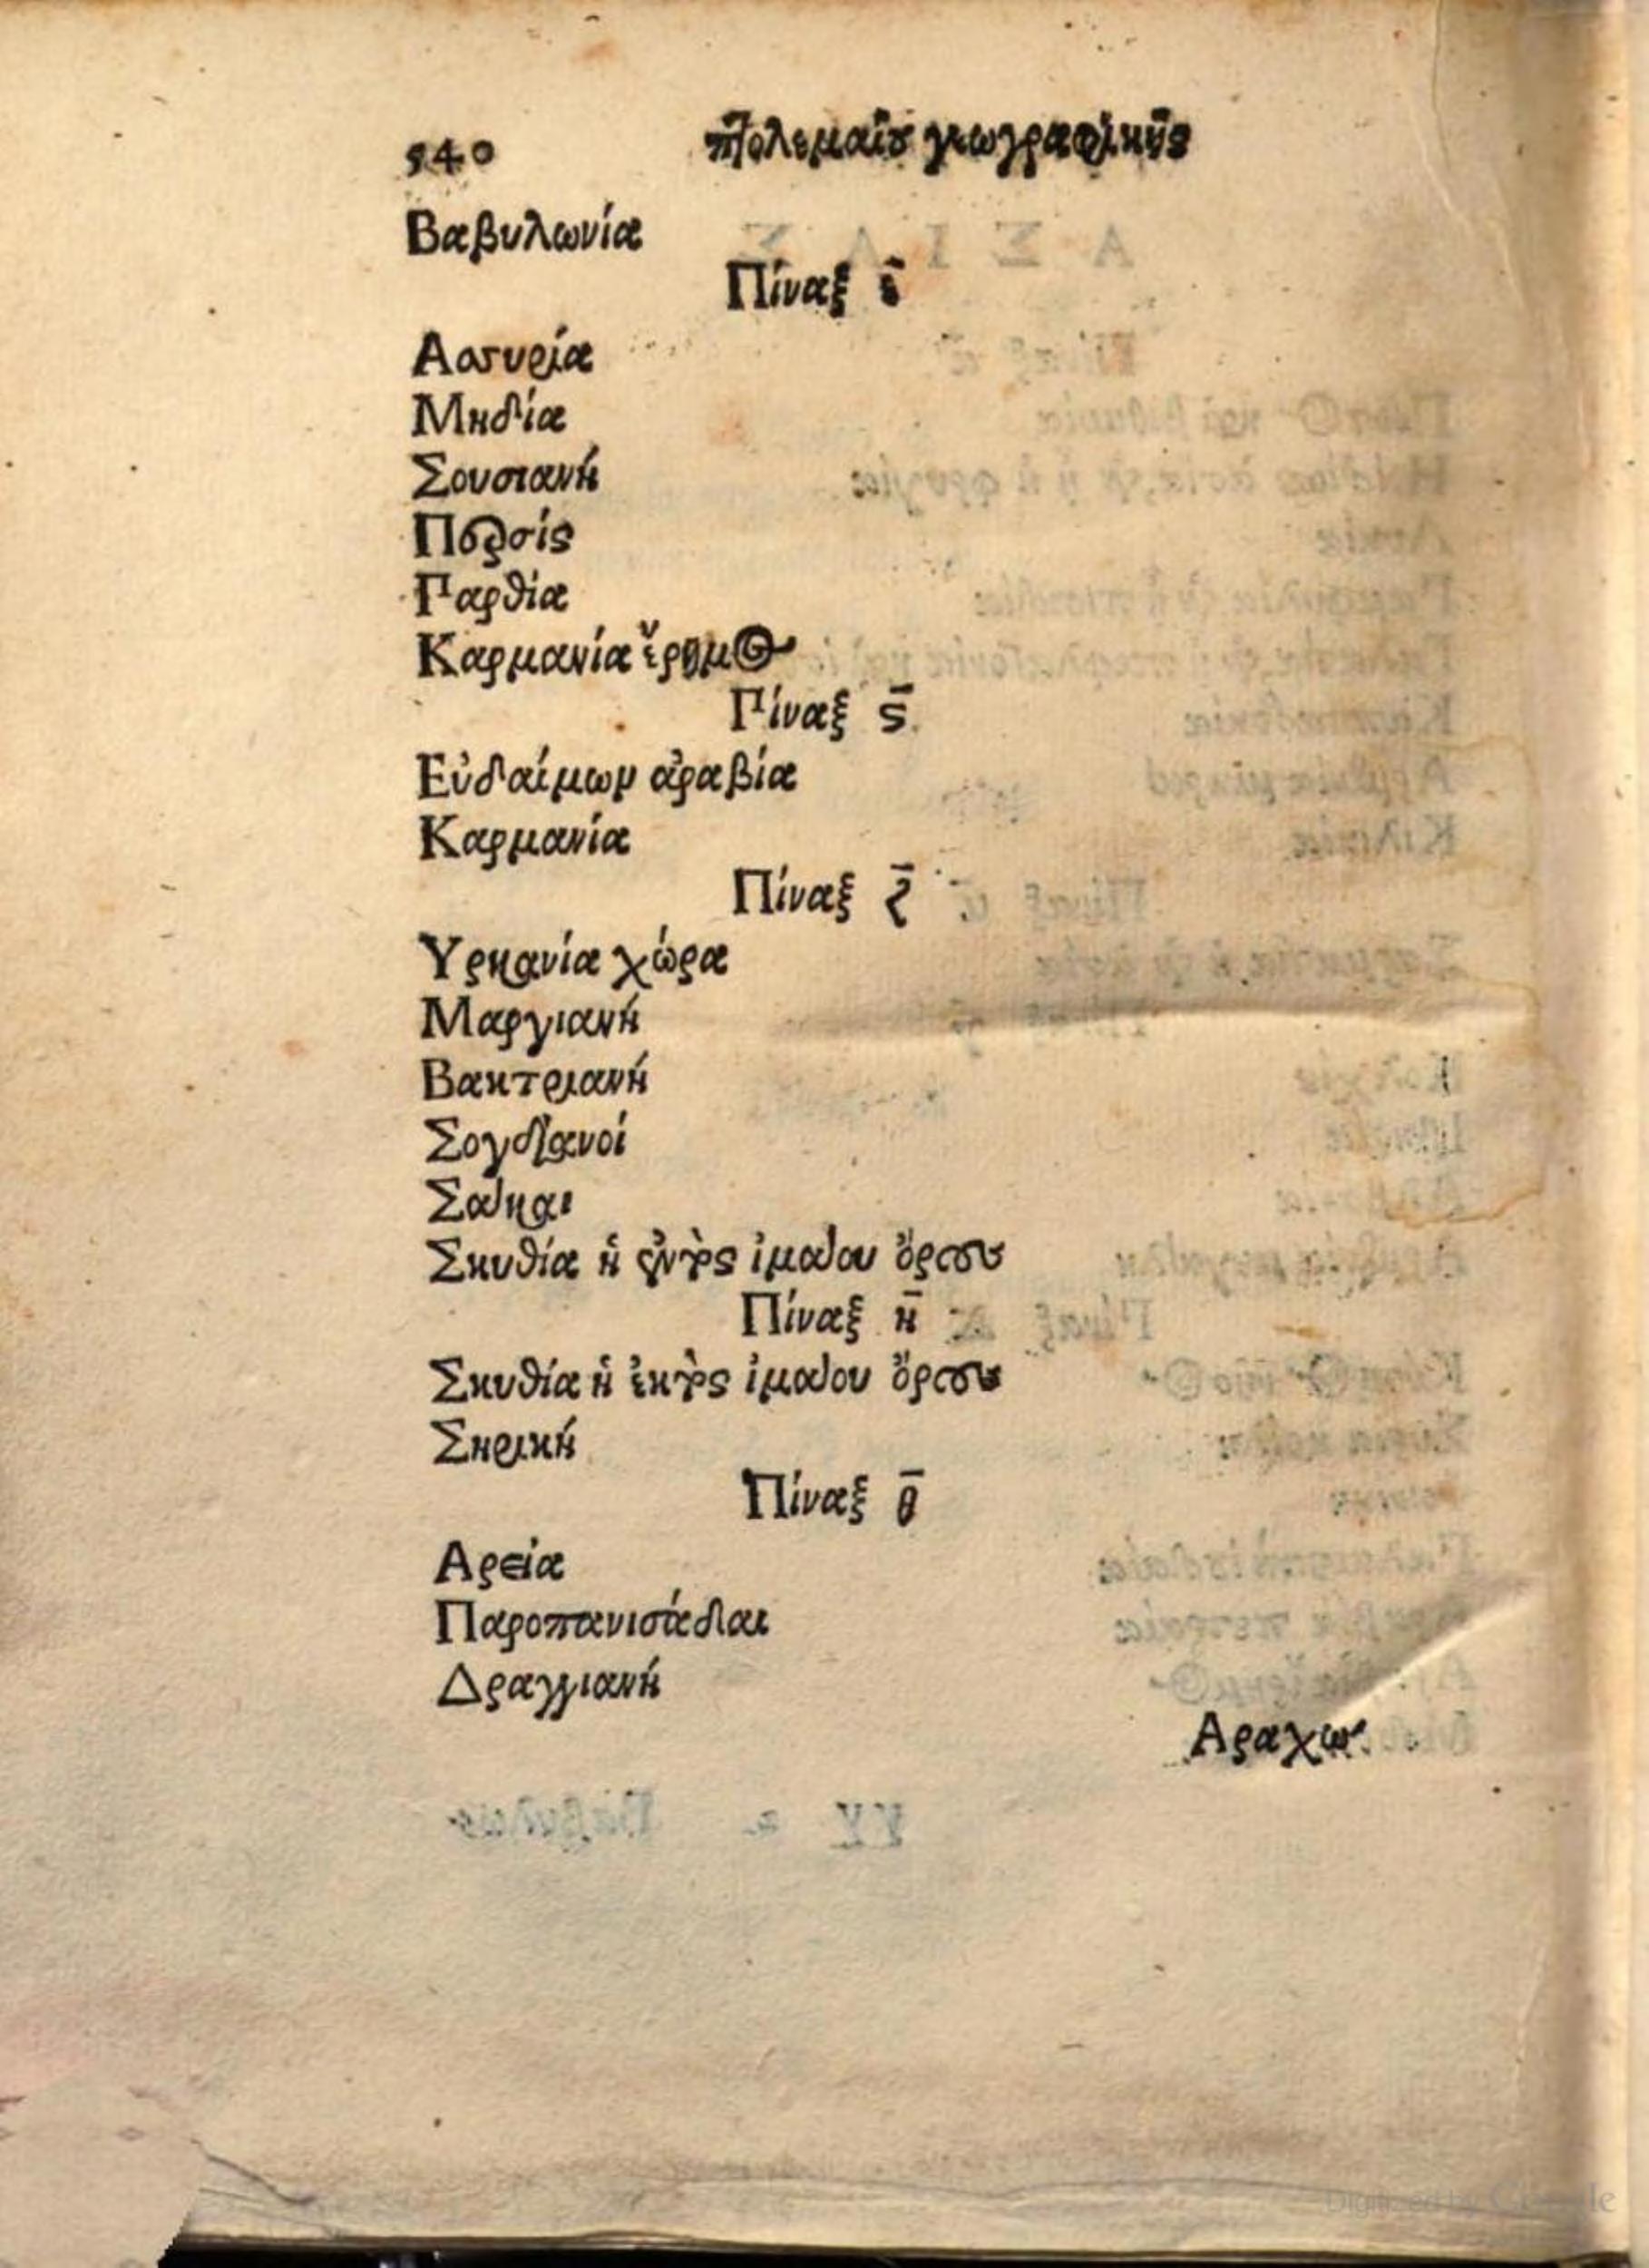 540 πτολεμαίου γεωγραφικῆς
Βαβυλωνία
Πίναξ ε̄
Ασσυρία
Μηδία
Σουσιανή
Περσίς
Παρθία
Καρμανία ἔρημος
Πίναξ ϛ̄
Εὐδαίμων ἀραβία
Καρμανία
Πίναξ ζ̄
Υρκανία χώρα
Μαργιανή
Βακτριανή
Σογδιανοί
Σάκαι
Σκυθία ἡ ἐντὸς ἰμάου ὄρους
Πίναξ η̄
Σκυθία ἡ ἐκτὸς ἰμάου ὄρους
Σηρική
Πίναξ θ̄
Αρεία
Παροπανισάδαι
Δραγγιανή
Αραχω-
Digitized by Google